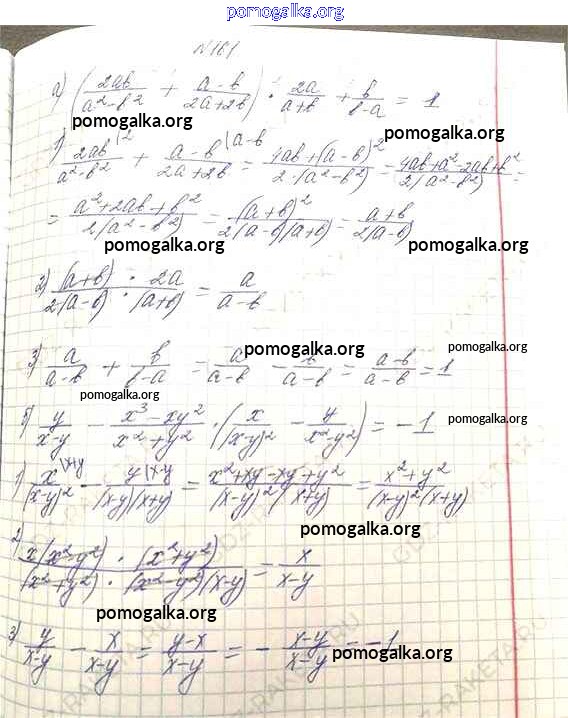 pomogalka.org
№161
а) (2ab/(a²-b²) + (a-b)/(2a+2b)) · 2a/(a+b) + b/(b-a) = 1
pomogalka.org
pomogalka.org
1) 2ab/(a²-b²) |2 + (a-b)/(2a+2b) |a-b = (4ab+(a-b)²)/(2·(a²-b²)) = (4ab+a²-2ab+b²)/(2(a²-b²)) =
= (a²+2ab+b²)/(2(a²-b²)) = (a+b)²/(2(a-b)(a+b)) = (a+b)/(2(a-b))
pomogalka.org
pomogalka.org
2) ((a+b) · 2a)/(2(a-b) · (a+b)) = a/(a-b)
pomogalka.org
pomogalka.org
3) a/(a-b) + b/(b-a) = a/(a-b) - b/(a-b) = (a-b)/(a-b) = 1
pomogalka.org
pomogalka.org
б) y/(x-y) - (x³-xy²)/(x²+y²) · (x/(x-y)² - y/(x²-y²)) = -1
1) x/(x-y)² |x+y - y/((x-y)(x+y)) |x-y = (x²+xy-xy+y²)/((x-y)²(x+y)) = (x²+y²)/((x-y)²(x+y))
pomogalka.org
2) (x(x²-y²) · (x²+y²))/((x²+y²) · (x²-y²)(x-y)) = x/(x-y)
pomogalka.org
3) y/(x-y) - x/(x-y) = (y-x)/(x-y) = - (x-y)/(x-y) = -1
pomogalka.org